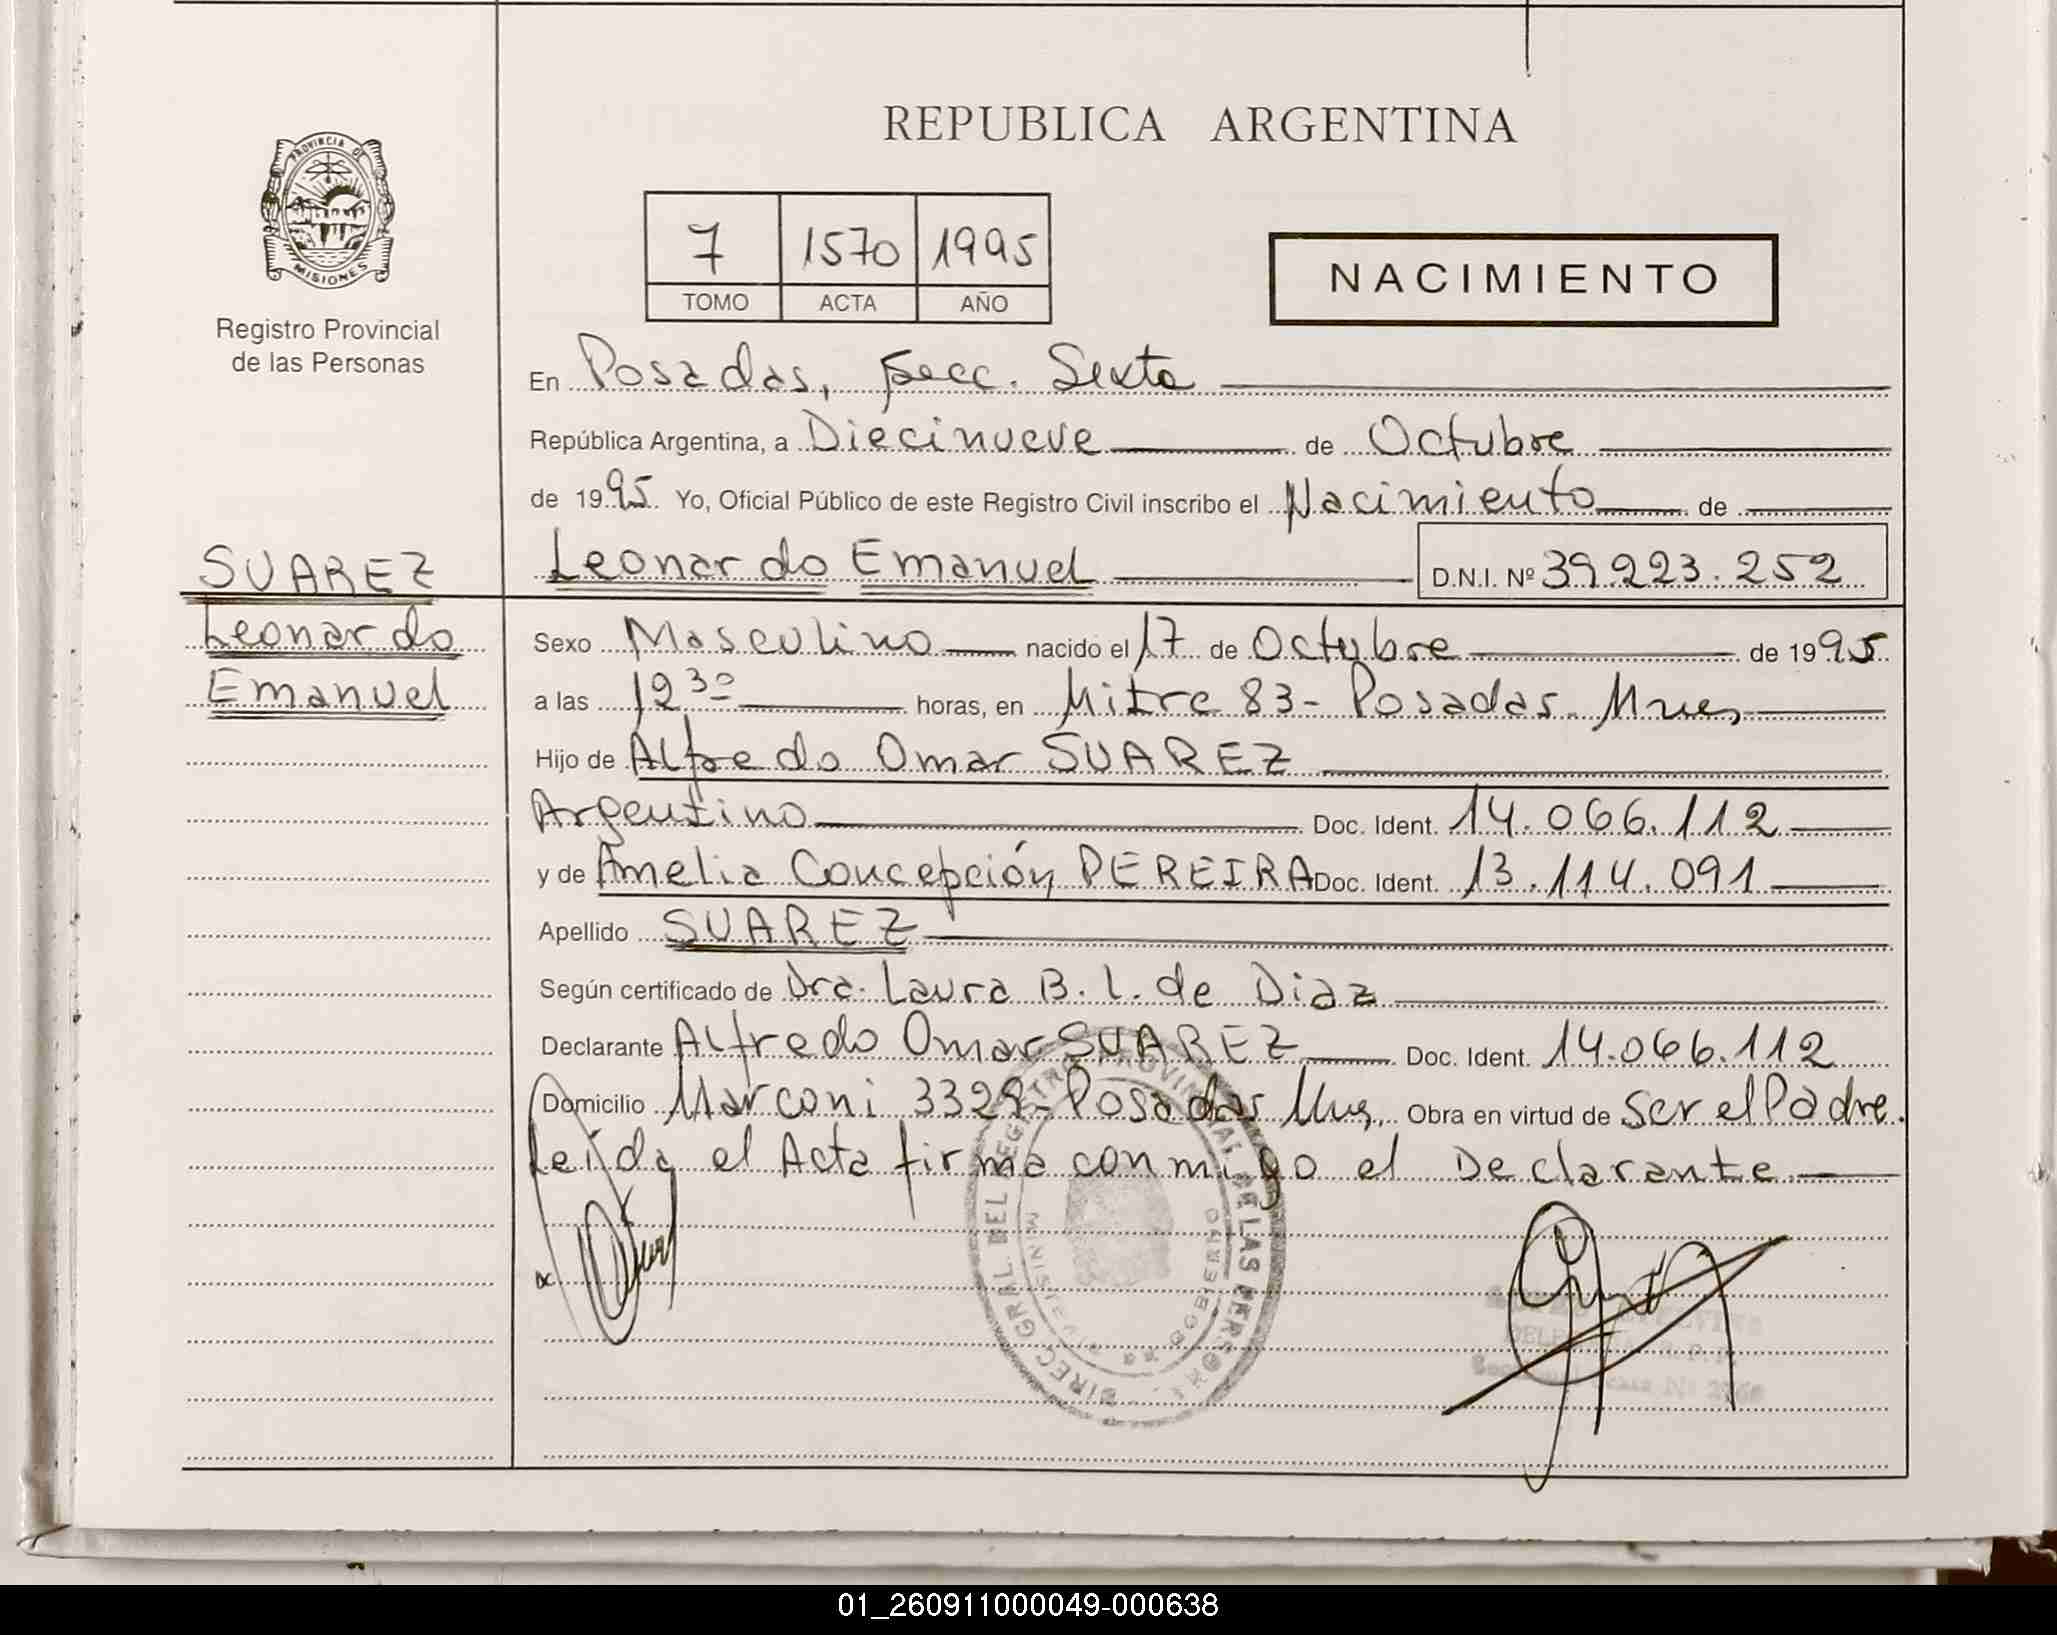 REPUBLICA ARGENTINA
PROVINCIA DE
MISIONES
Registro Provincial
de las Personas
7 1570 1995
TOMO ACTA AÑO
NACIMIENTO
En Posadas, Secc. Sexta
República Argentina, a Diecinueve de Octubre
de 1995 Yo, Oficial Público de este Registro Civil inscribo el Nacimiento de
SUAREZ
Leonardo
Emanuel
Leonardo Emanuel D.N.I. Nº 39.223.252
Sexo Masculino nacido el 17 de Octubre de 1995
a las 12 30 horas, en Mitre 83- Posadas- Mnes
Hijo de Alfredo Omar SUAREZ
Argentino Doc. Ident. 14.066.112
y de Amelia Concepción PEREIRA Doc. Ident. 13.114.091
Apellido SUAREZ
Según certificado de Dra. Laura B. L. de Diaz
Declarante Alfredo Omar SUAREZ Doc. Ident. 14.066.112
Domicilio Marconi 3329- Posadas Mnes, Obra en virtud de Ser el Padre.
Leída el Acta firma conmigo el Declarante
DIREC. GRAL. DEL REGISTRO PROVINCIAL DE LAS PERSONAS
GOBIERNO
01_260911000049-000638